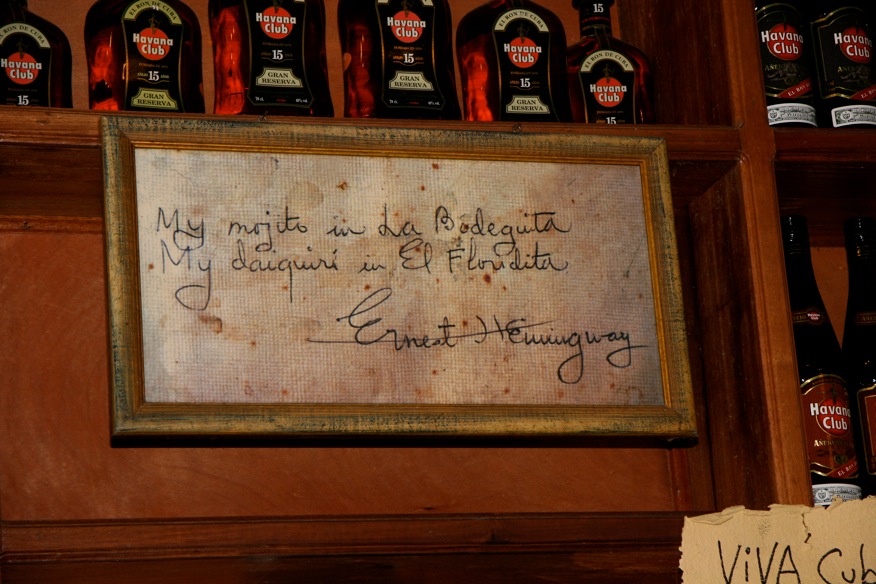 EL RON DE CUBA
Havana
Club
15
EL RON DE CUBA
Havana
Club
15
GRAN RESERVA
Havana
Club
15
GRAN
RESERVA
Havana
Club
15
GRAN
RESERVA
EL RON DE CUBA
Havana
Club
15
GRAN
RESERVA
15
EL RON DE CUBA
Havana
Club
15
Havana
Club
Havana
Club
My mojito in La Bodeguita
My daiquiri in El Floridita
Ernest Hemingway
Havana
Club
VIVA Cub